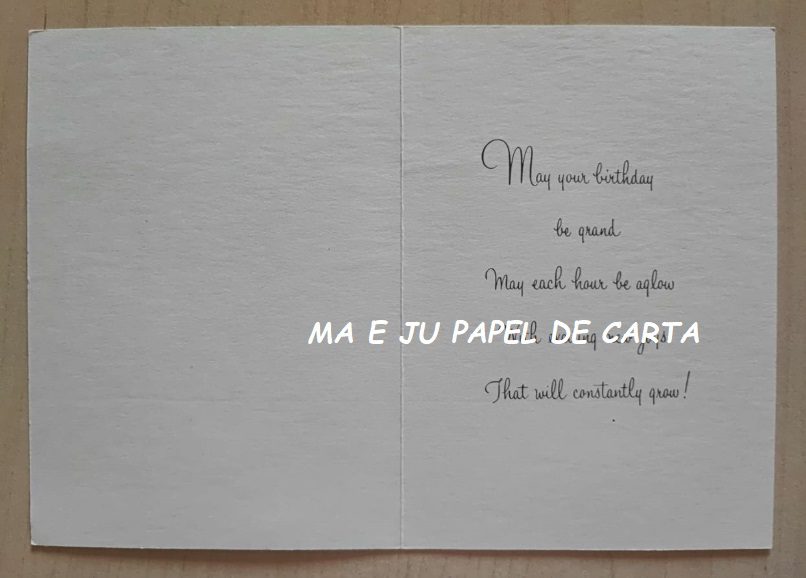 May your birthday
be grand
May each hour be aglow
MA E JU PAPEL DE CARTA
With new joys
That will constantly grow!